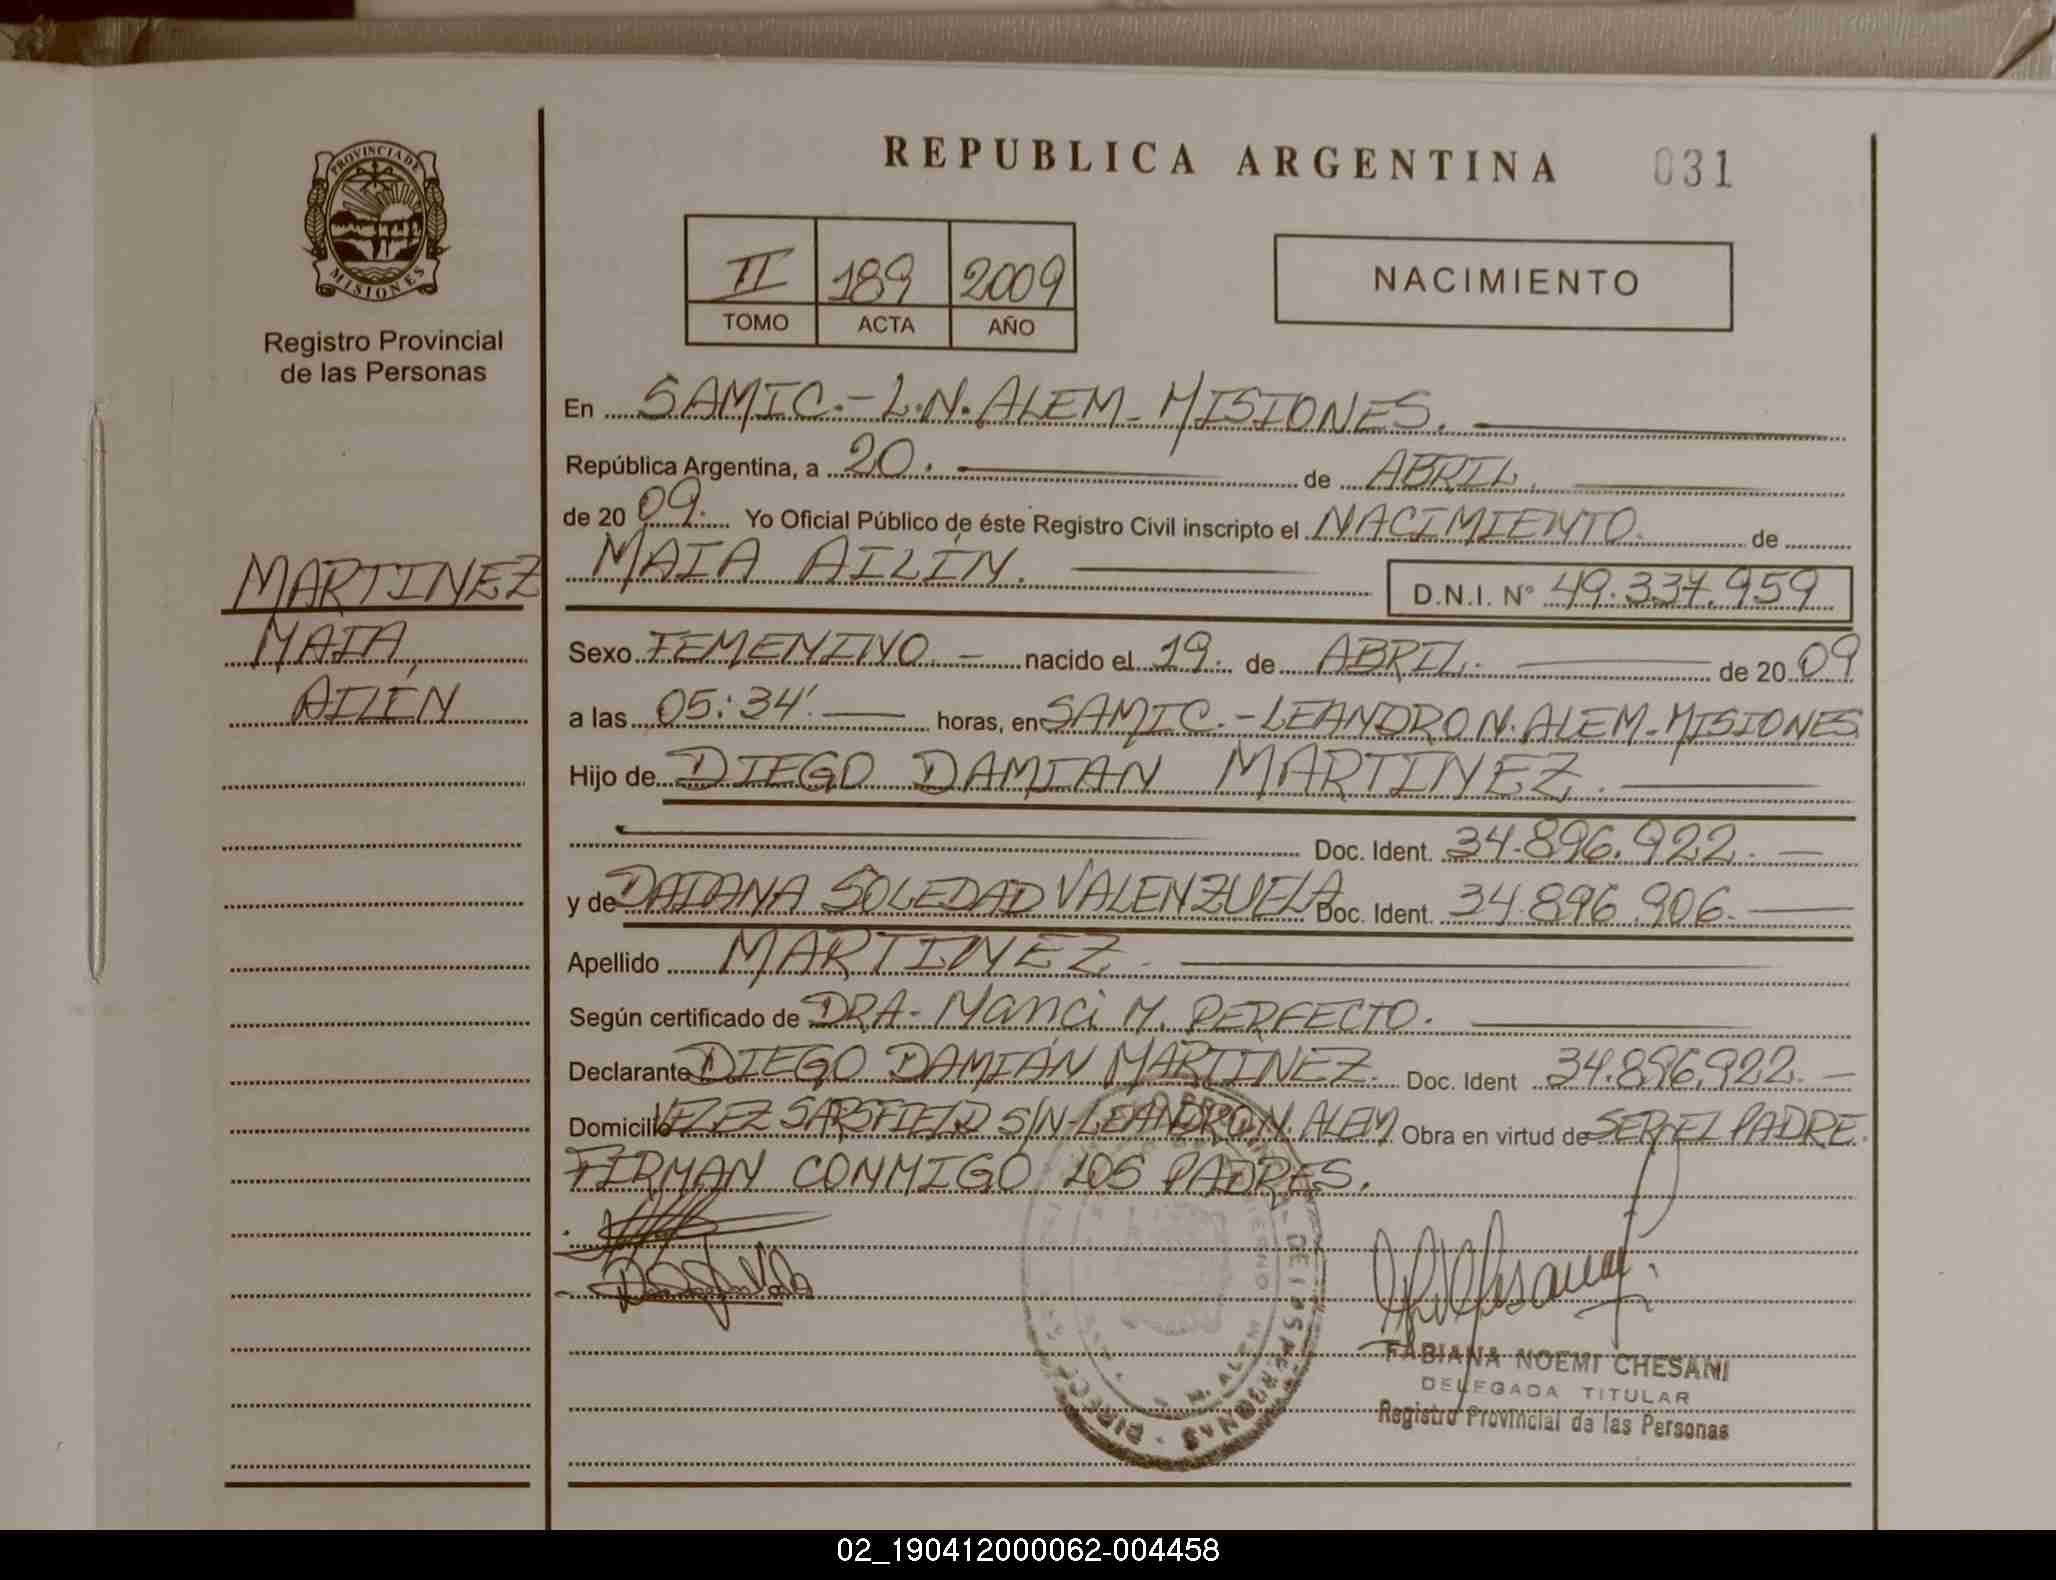 REPUBLICA ARGENTINA 031
PROVINCIA DE
MISIONES
Registro Provincial
de las Personas
II 189 2009
TOMO ACTA AÑO
NACIMIENTO
En SAMIC.- L.N. ALEM - MISIONES.
República Argentina, a 20. de ABRIL.
de 20 09. Yo Oficial Público de éste Registro Civil inscripto el NACIMIENTO. de
MAIA AILÍN. D.N.I. N° 49.337.959
MARTINEZ
MAIA,
AILÉN
Sexo FEMENINO. - nacido el 19. de ABRIL. de 20 09
a las 05:34'. horas, en SAMIC.-LEANDRO N. ALEM-MISIONES
Hijo de DIEGO DAMIAN MARTINEZ.
Doc. Ident. 34.896.922. -
y de DAIANA SOLEDAD VALENZUELA Doc. Ident. 34.896.906.
Apellido MARTINEZ.
Según certificado de DRA- Nanci M. PERFECTO.
Declarante DIEGO DAMIÁN MARTINEZ. Doc. Ident 34.896.922. -
Domicilio VELEZ SARSFIELD S/N-LEANDRO N. ALEM Obra en virtud de SER EL PADRE.
FIRMAN CONMIGO LOS PADRES.
FABIANA NOEMI CHESANI
DELEGADA TITULAR
Registro Provincial de las Personas
02_190412000062-004458